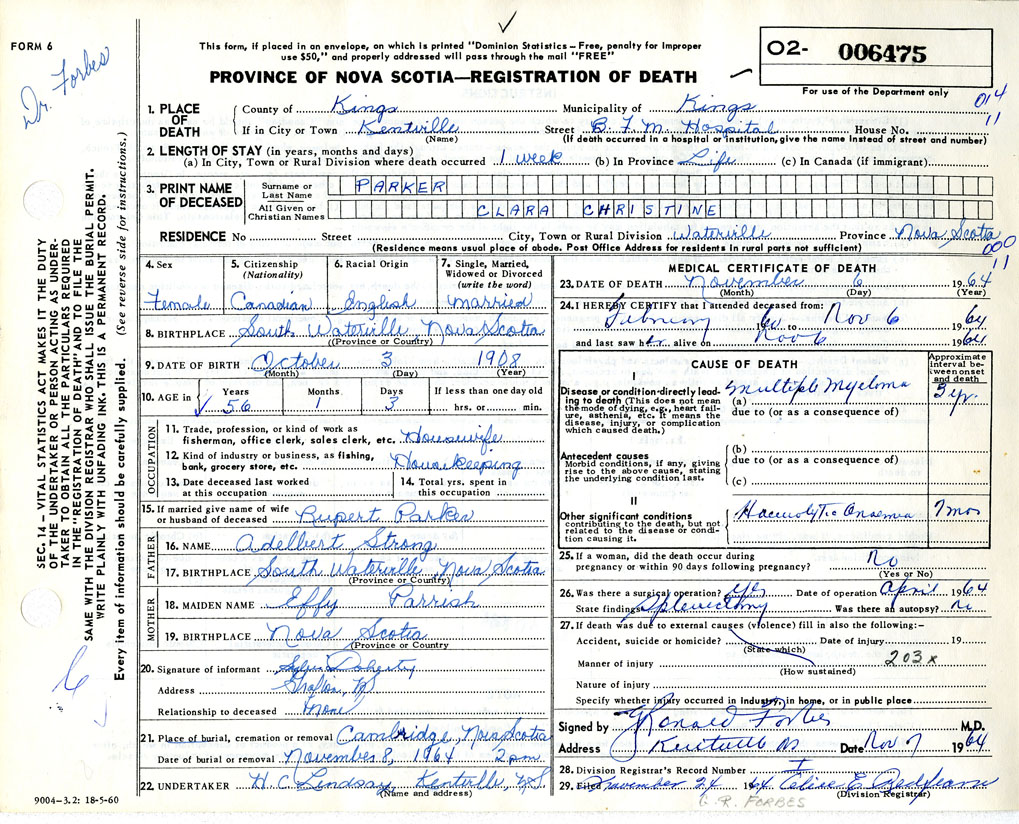 FORM 6
Dr. Forbes
This form, if placed in an envelope, on which is printed "Dominion Statistics – Free, penalty for improper
use $50," and properly addressed will pass through the mail "FREE"
PROVINCE OF NOVA SCOTIA—REGISTRATION OF DEATH
O2- 006475
For use of the Department only
014
11
SEC. 14 – VITAL STATISTICS ACT MAKES IT THE DUTY
OF THE UNDERTAKER OR PERSON ACTING AS UNDER-
TAKER TO OBTAIN ALL THE PARTICULARS REQUIRED
IN THE "REGISTRATION OF DEATH" AND TO FILE THE
SAME WITH THE DIVISION REGISTRAR WHO SHALL ISSUE THE BURIAL PERMIT.
WRITE PLAINLY WITH UNFADING INK. THIS IS A PERMANENT RECORD.
Every item of information should be carefully supplied. (See reverse side for instructions.)
1. PLACE OF DEATH
County of Kings Municipality of Kings
If in City or Town Kentville Street B. F. M. Hospital House No.
(Name) (If death occurred in a hospital or institution, give the name instead of street and number)
2. LENGTH OF STAY (in years, months and days)
(a) In City, Town or Rural Division where death occurred 1 week (b) In Province Life (c) In Canada (if immigrant)
3. PRINT NAME OF DECEASED
Surname or Last Name PARKER
All Given or Christian Names CLARA CHRISTINE
RESIDENCE No Street City, Town or Rural Division Waterville Province Nova Scotia
(Residence means usual place of abode. Post Office Address for residents in rural parts not sufficient)
000
11
4. Sex Female
5. Citizenship (Nationality) Canadian
6. Racial Origin English
7. Single, Married, Widowed or Divorced (write the word) married
8. BIRTHPLACE South Waterville Nova Scotia
(Province or Country)
9. DATE OF BIRTH October 3 1908
(Month) (Day) (Year)
10. AGE in Years 56 Months 1 Days 3 If less than one day old hrs. or min.
OCCUPATION
11. Trade, profession, or kind of work as
fisherman, office clerk, sales clerk, etc. Housewife
12. Kind of industry or business, as fishing,
bank, grocery store, etc. Housekeeping
13. Date deceased last worked
at this occupation
14. Total yrs. spent in
this occupation
15. If married give name of wife
or husband of deceased Rupert Parker
FATHER
16. NAME Adelbert Strong
17. BIRTHPLACE South Waterville Nova Scotia
(Province or Country)
MOTHER
18. MAIDEN NAME Effy Parrish
19. BIRTHPLACE Nova Scotia
(Province or Country
20. Signature of informant Doherty
Address Grafton, NS
Relationship to deceased none
21. Place of burial, cremation or removal Cambridge, Nova Scotia
Date of burial or removal November 8, 1964 2 pm
22. UNDERTAKER H. C. Lindsay Kentville, N.S.
(Name and address)
9004-3.2: 18-5-60
MEDICAL CERTIFICATE OF DEATH
23. DATE OF DEATH November 6 1964
(Month) (Day) (Year)
24. I HEREBY CERTIFY that I attended deceased from:
February to Nov 6 1964
and last saw her alive on Nov 6 1964
CAUSE OF DEATH
Approximate interval between onset and death
I
Disease or condition directly leading to death (This does not mean the mode of dying, e.g., heart failure, asthenia, etc. It means the disease, injury, or complication which caused death.)
(a) Multiple Myeloma 3 yr.
due to (or as a consequence of)
Antecedent causes
Morbid conditions, if any, giving rise to the above cause, stating the underlying condition last.
(b)
due to (or as a consequence of)
(c)
II
Other significant conditions
contributing to the death, but not related to the disease or condition causing it.
Haemolytic Anaemia 7 mos
25. If a woman, did the death occur during
pregnancy or within 90 days following pregnancy? No
(Yes or No)
26. Was there a surgical operation? Yes Date of operation April 1964
State findings Splenectomy Was there an autopsy? No
27. If death was due to external causes (violence) fill in also the following:–
Accident, suicide or homicide? Date of injury 19
(State which)
Manner of injury 203x
(How sustained)
Nature of injury
Specify whether injury occurred in industry, in home, or in public place
Signed by Ronald Forbes M.D.
Address Kentville NS Date Nov 7 1964
28. Division Registrar's Record Number
29. Filed November 24 1964 E.
(Division Registrar)
G. R. FORBES